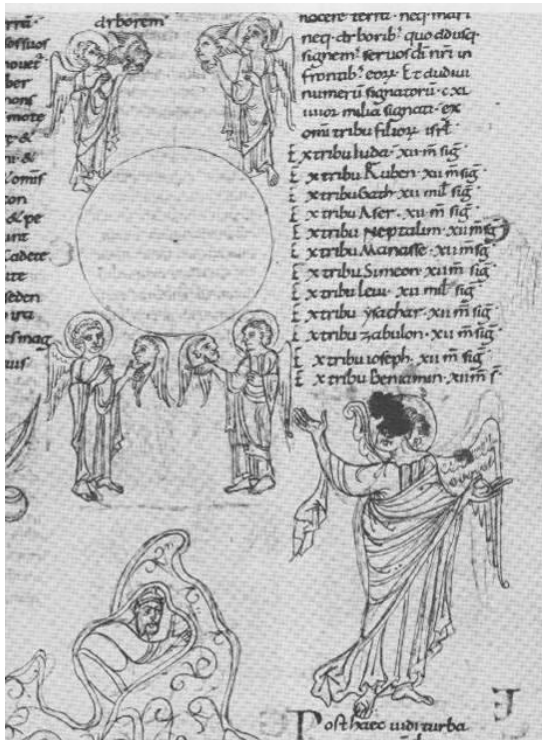 nouet
ber
mons
mote
omis
ton
& pe
unt
Cadete
ite
seden
ira
esmag
arborem
nocere terrę· neq· mari
neq· arborib; quo adusq·
signem; seruos di nri in
frontib; eorr· Et audiui
numerū signatorū· cxl
iiiior milia signati· ex
omi tribu filiorr isrl·
Ex tribu Iuda· xii m̄ sig̅·
Ex tribu Ruben· xii m̄ sig̅·
Ex tribu Gath· xii mil sig̅·
Ex tribu Aser· xii m̄ sig̅·
Ex tribu Neptalim· xii m̄ sig̅
Ex tribu Manasse· xii m̄ sig̅·
Ex tribu Simeon· xii m̄ sig̅·
Ex tribu Leui· xii mil sig̅·
Ex tribu ysachar· xii m̄ sig̅·
Ex tribu zabulon· xii m̄ sig̅·
Ex tribu ioseph· xii m̄ sig̅·
Ex tribu Beniamin· xii m̄ s̅·
Post haec uidi turba